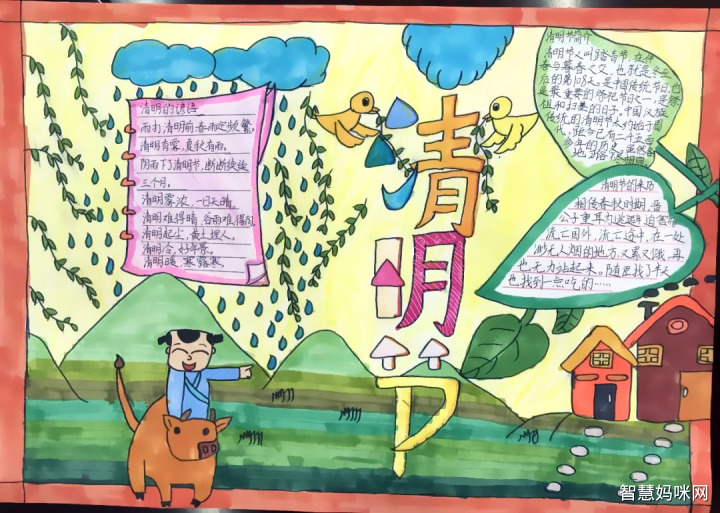 清明的谚语
雨打清明前，春雨定频繁。
清明有雾，夏秋有雨。
阴雨下了清明节，断断续续
三个月。
清明雾浓，一日天晴。
清明难得晴，谷雨难得阴。
清明起尘，黄土埋人。
清明冷，好年景。
清明暖，寒露寒。
清明节
清明节简介
清明节又叫踏青节，在仲
春与暮春之交，也就是冬至
后的第108天。是中国传统节日，也
是最重要的祭祀节日之一，是祭
祖和扫墓的日子。中国汉族
传统的清明节大约始于周
代，距今已有二千五百
多年的历史。
清明节的来历
相传春秋时期，晋
公子重耳为逃避迫害而
流亡国外，流亡途中，在一处
渺无人烟的地方，又累又饿，再
也无力站起来。随臣找了半天
也找到一点吃的……
智慧妈咪网